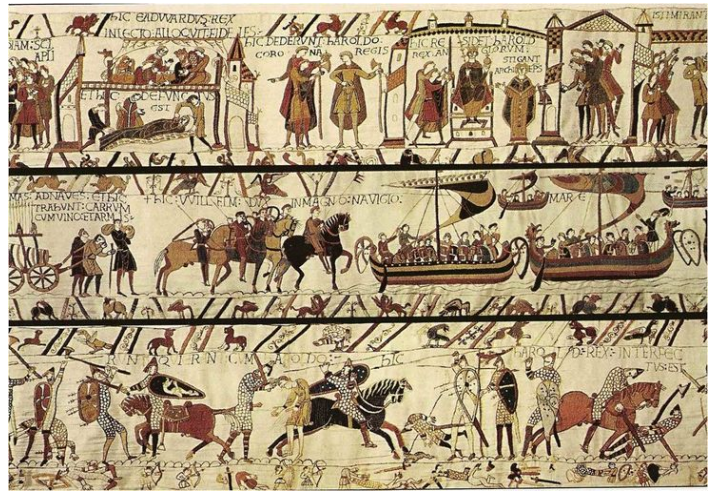 hIC EADVVARDVS:REX
INLECTO:ALLOQVIT:FIDELES:
ET hIC DEFVNCTVS
EST
hIC DEDERVNT:hAROLDO:
CORO NA REGIS
hIC RE SIDET:hAROLD
REX:AN GLORVM:
STIGANT
ARChIEPS
ISTI MIRANT
AD NAVES:ET hIC
TRAhVNT:CARRVM
CVM VINO:ET ARMIS:
†hIC:VVILLELM:DVX INMAGNO:NAVIGIO:
MARE
hIC
hARO D:REX:INTERFEC
TVS:EST